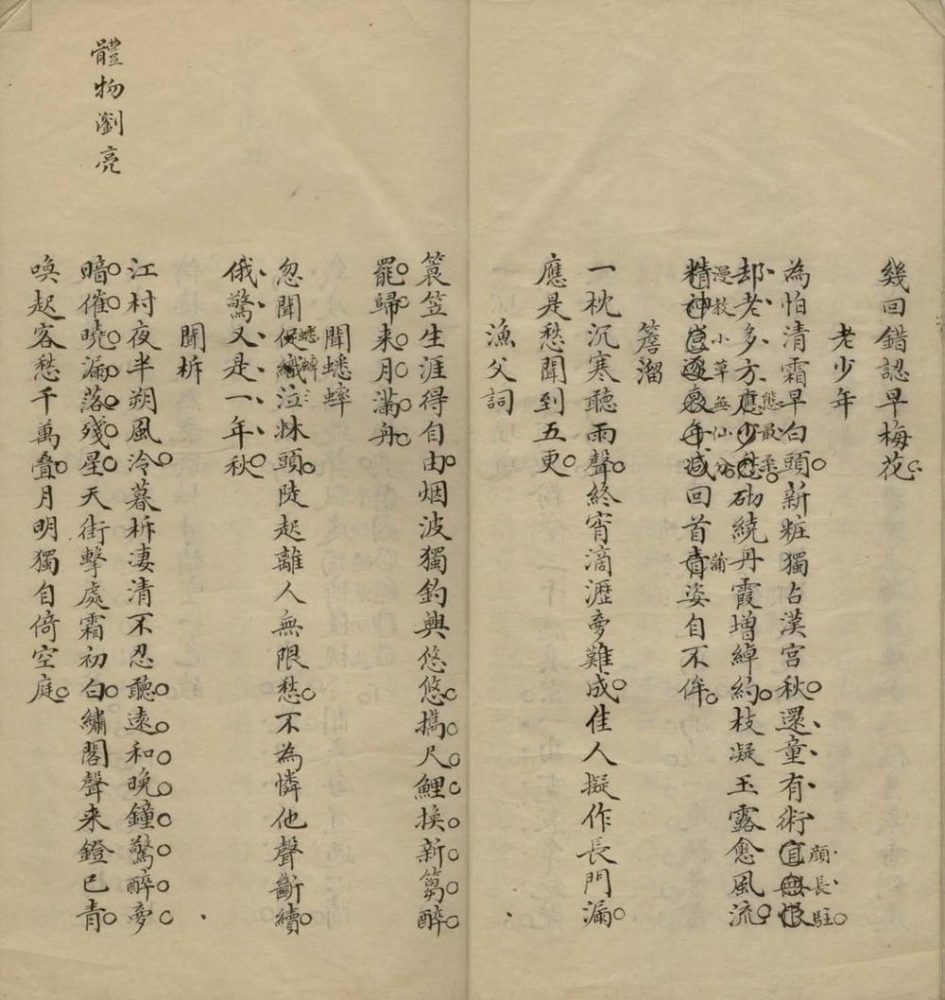 幾回錯認早梅花
老少年
為怕清霜早白頭新粧獨占漢宮秋還童有術宜無恨
顏長駐
却老多方應少愁砌繞丹霞增綽約枝凝玉露愈風流
態最柔
漫教小草無仙分
精神逐年減回首
蒲
姿自不侔
簷溜
一枕沉寒聽雨聲終宵滴瀝夢難成佳人擬作長門漏
應是愁聞到五更
漁父詞
簑笠生涯得自由烟波獨釣興悠悠攜尺鯉換新篘醉
罷歸来月滿舟
聞蟋蟀
忽聞促織泣牀頭陡起離人無限愁不為憐他聲斷續
蟋蟀
俄驚又是一年秋
聞柝
江村夜半朔風泠暮柝凄清不忍聽遠和晚鐘驚醉夢
暗催曉漏落殘星天街擊處霜初白繡閣聲来鐙已青
喚起客愁千萬疊月明獨自倚空庭
體物瀏亮